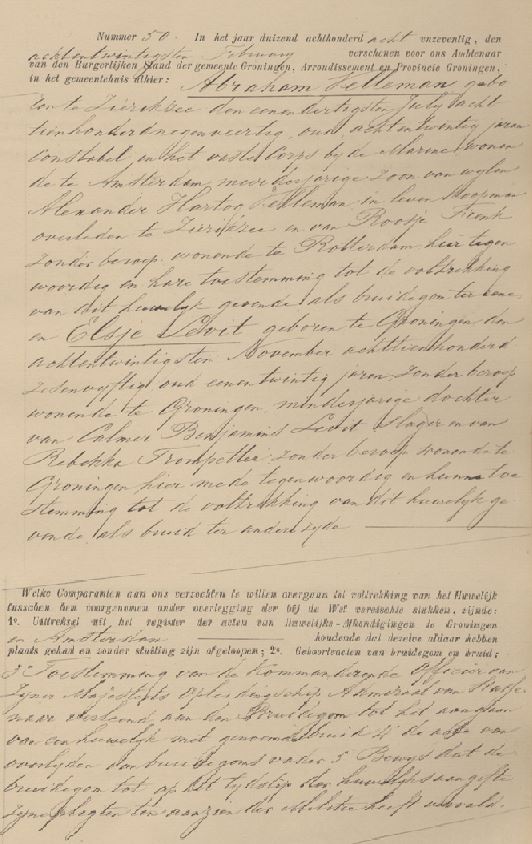 Nummer 50. In het jaar duizend achthonderd acht en zeventig, den
achtentwintigsten February verschenen voor ons Ambtenaar
van den Burgerlijken Stand der gemeente Groningen, Arrondissement en Provincie Groningen,
in het gemeentehuis alhier: Abraham Telleman gebo
ren te Zierikzee den eenendertigsten July acht
tienhonderdnegenenveertig, oud achtentwintig jaren
Constabel in het vaste corps bij de Marine, wonen
de te Amsterdam, meerderjarige zoon van wijlen
Alexander Hartog Telleman in leven Koopman
overleden te Zierikzee en van Roosje
zonder beroep wonende te Rotterdam, hier tegen
woordig en hare toestemming tot de voltrekking
van dit huwelijk gevende als bruidegom ter eene
en Elsje Levit geboren te Groningen den
achtentwintigsten November achttienhonderd
zesenvijftig oud eenentwintig jaren, zonder beroep
wonende te Groningen, minderjarige dochter
van Calmer Benjamins Levit Slager en van
Rebekka Trompetter zonder beroep wonende te
Groningen hier mede tegenwoordig en hunne toe
stemming tot de voltrekking van dit huwelijk ge
vende, als bruid ter andere zijde
Welke Comparanten aan ons verzochten te willen overgaan tot voltrekking van het Huwelijk
tusschen hen voorgenomen onder overlegging der bij de Wet vereischte stukken, zijnde:
1º. Uittreksel uit het register der acten van huwelijks-Afkondigingen te Groningen
en Amsterdam houdende dat dezelve aldaar hebben
plaats gehad en zonder stuiting zijn afgeloopen; 2º. Geboorteacten van bruidegom en bruid;
3º Toestemming van de Kommanderende Officier van
Zijner Majesteits Opleidingschip Admiraal van Wasse
naar verleend aan den Bruidegom tot het aangaan
van een huwelijk met genoemde bruid 4º de acte van
overlijden van bruidegoms vader 5º Bewijs dat de
bruidegom tot op het tijdstip der huwelijksaangifte
zijne pligten ten aanzien der Militie heeft vervuld.